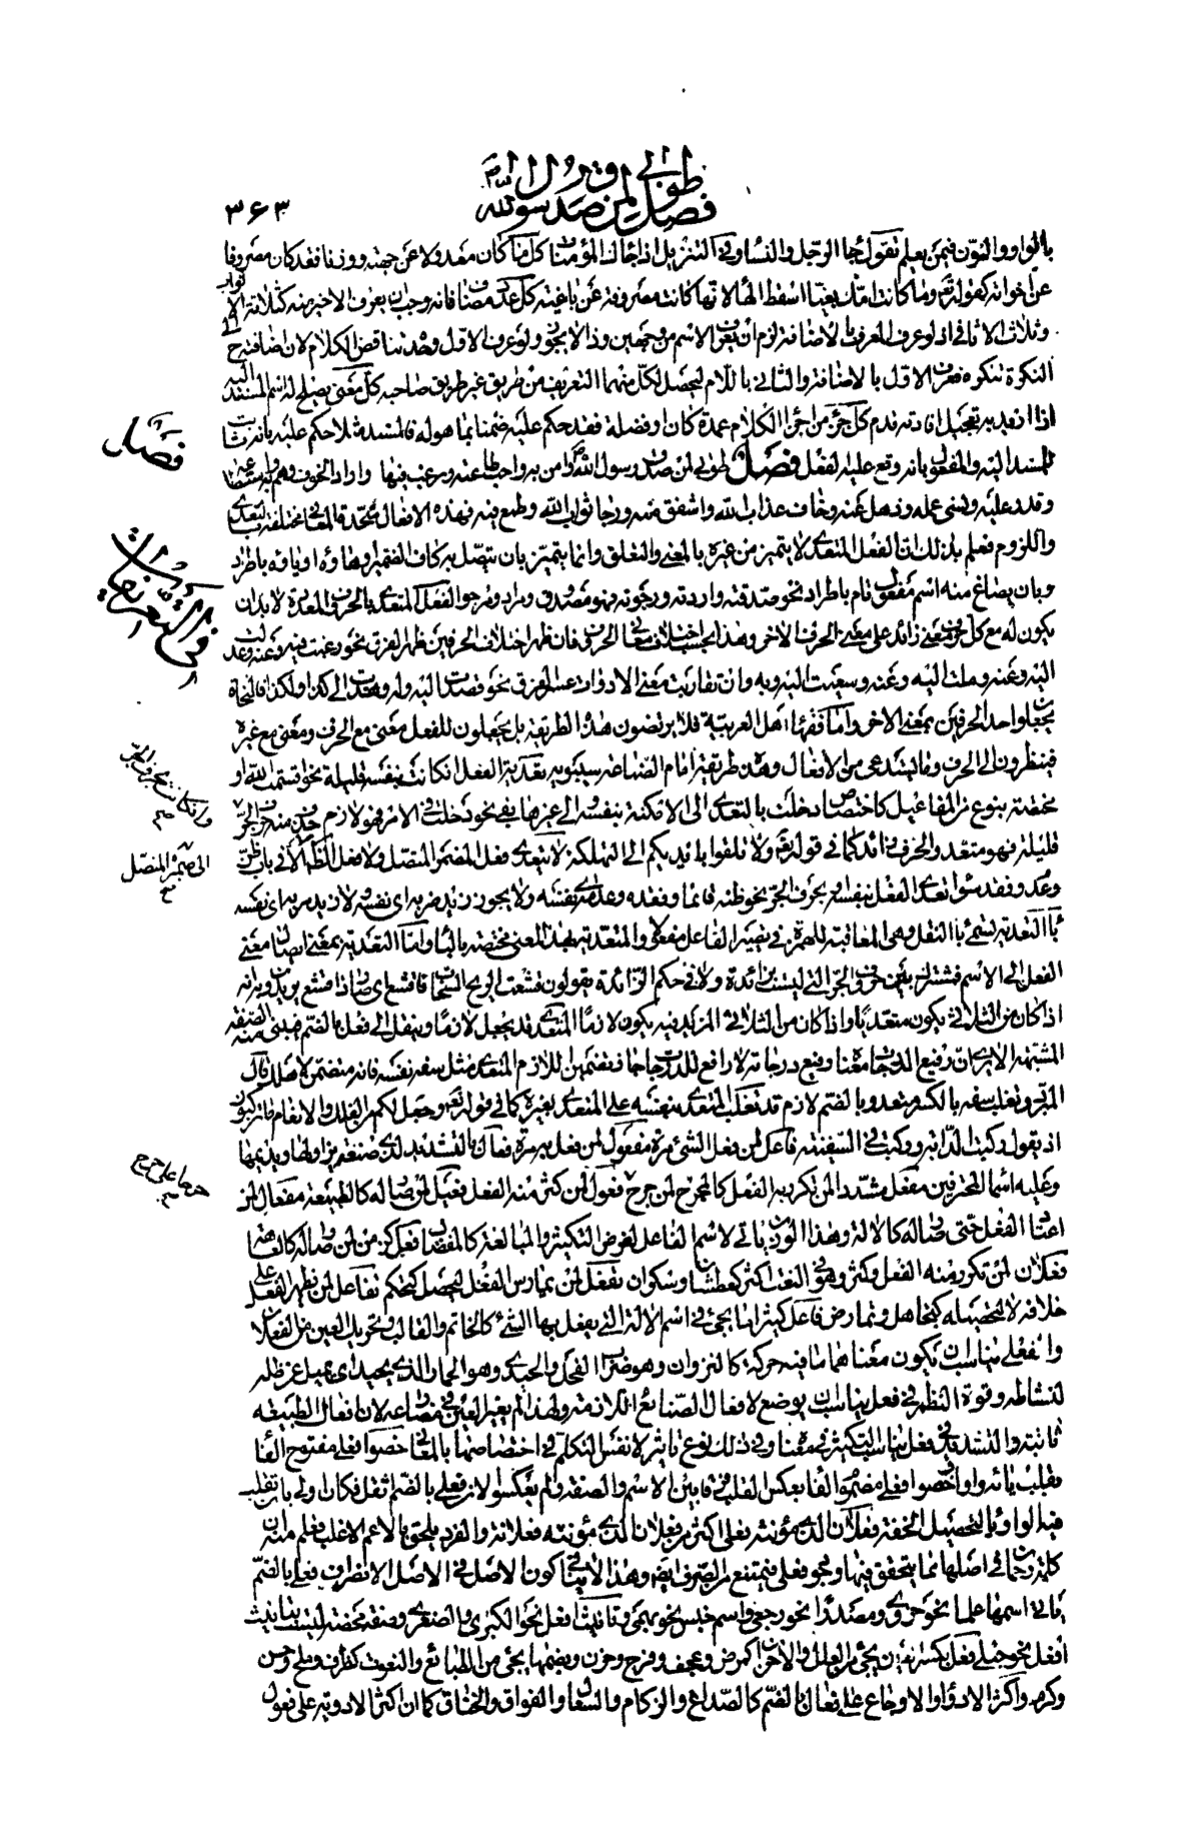 فصل طوبى لمن صدق رسول الله
٣٦٣
بالواو والنون فيمن يعلم تقول جاء الرجل والنساء وفي التنزيل اذا جاءك المؤمنات كل ما كان معدولا عن جهته ووزنه فقد كان مصروفا
عن اخواته كقوله وما كانت امك بغيا اسقط الهاء لانها كانت مصروفة عن باغية كل عدد مضاف فانه وجب ان يعرف الاخير منه كثلاثة الاثواب
وثلاث الاثافي اذ لو عرف المعرف بالاضافة لزم ان يعرف الاسم من وجهين وذا لا يجوز ولو عرف الاول وحده تناقض الكلام لان اضافته ح
النكرة تنكره فعرف الاول بالاضافة والثاني باللام ليحصل لكل منهما التعريف من طريق غير طريق صاحبه كل معنى يصلح له اسم المسند اليه
اذا اريد به تعجيل افادته قدم كل جزء من اجزاء الكلام عمدة كان او فضلة فقد حكم عليه ضمنا بما هو له فالمسند مثلا حكم عليه بانه ثابت
للمسند اليه والمفعول بانه وقع عليه الفعل فصل طوبى لمن صدق رسول الله وآمن به واحب طاعته ورغب فيها واراد الخير وهم به
وقدر عليه ونسي عمله وذهل عنه وخاف عذاب الله واشفق منه ورجا ثواب الله وطمع فيه فهذه الافعال متحدة المعاني مختلفة بالتعدي
واللزوم فعلم بذلك ان الفعل المتعدي لا يتميز من غيره بالمعنى والتعلق وانما يتميز بان يتصل به كاف الضمير او هاؤه او ياؤه باطراد
وبان يصاغ منه اسم مفعول تام باطراد نحو صدقته واردته ورجوته فهو مصدوق ومراد ومرجو الفعل المتعدي بالحروف المتعددة لا بد ان
يكون له مع كل حرف معنى زائد على معنى الحرف الآخر وهذا بحسب اختلاف معاني الحروف فان ظهر اختلاف الحرفين ظهر الفرق نحو رغبت فيه وعنه وعدلت
اليه وعنه وملت اليه وعنه وسعيت اليه وبه وان تقاربت معنى الادوات عسر الفرق نحو قصدت اليه وله وهديت الى كذا ولكذا فالنحاة
يجعلوا احد الحرفين بمعنى الآخر واما فقهاء اهل العربية فلا يرتضون هذه الطريقة بل يجعلون للفعل معنى مع الحرف ومعنى مع غيره
فينظرون الى الحرف وما يستدعي من الافعال وهذه طريقة امام الصناعة سيبويه تعدية الفعل ان كانت بنفسه قليلة نحو اقسمت الله او
مختصة بنوع من المفاعيل كاختصاص دخلت بالتعدي الى الامكنة بنفسه والى غيرها بفي نحو دخلت في الامر فهو لازم حذف منه حرف الجر
قليلة فهو متعد والحرف زائد كما في قوله تعالى ولا تلقوا بايديكم الى التهلكة لا يتعدى فعل المضمر المتصل ولا فعل الظاهر الا في باب ظن
وعدم وفقد سواء تعدى الفعل بنفسه او بحرف الجر نحو ظنه قائما وفقده وعدمه نفسه ولا يجوز زيد ضربه اي نفسه ولا زيد مر به اي نفسه
باء التعدية تسمى باء النقل وهي المعاقبة للهمزة في تصيير الفاعل مفعولا والتعدية بهذا المعنى مختصة بالباء واما التعدية بمعنى ايصال معنى
الفعل الى الاسم فمشتركة بين حروف الجر التي ليست بزائدة ولا في حكم الزائدة
اذا كان من الثلاثي يكون متعديا واذا كان من الثلاثي المزيد فيه يكون لازما المتعدي قد يجعل لازما وينقل الى فعل بالضم فيبنى منه الصفة
المشبهة الا يرى ان رفيع الدرجات معناه رفيع درجاته لا رافع للدرجات
اذ يقول ركبت الدابة وركبت في السفينة فاعل لمن فعل الشيء مرة مفعول لمن فعل به مرة فعال بالتشديد لذي صنعة يزاولها ويديمها
وعليه اسماء المحترفين مفعل مشددا لمن تكرر به الفعل كالمجرح لمن جرح فعول لمن كثر منه الفعل فعيل لمن صار له كالطبيعة مفعال لمن
اعتاد الفعل حتى صار له كالآلة وهذا الوزن ياتي لاسم الفاعل لغرض التكثير والمبالغة كالمفضال
فعلان لمن تكرر منه الفعل وكثر وهو في النعت اكثر كعطشان وسكران تفعل لمن يمارس الفعل ليحصل كتحكم تفاعل لمن يظهر الفعل على
خلافه لا لتحصيله كتجاهل وتمارض فاعل كثيرا ما يجيء في اسم الآلة التي يفعل بها الشيء كالخاتم والقالب وتحريك العين من الفعلان
والفعلى يناسب ان يكون معناهما ما فيه حركة كالنزوان وهو ضراب الفحل والحيدى وهو الحمار الذي يحيد اي يميل عن ظله
لنشاطه وقوة النظم في فعل يناسب ان يوضع لافعال الصنائع اللازمة ولهذا لم يغير العين في مضارعه لان افعال الطبيعة
ثابتة والتشديد في فعل يناسب التكثير في معناه وفي ذلك نوع تاثير لانفس الكلم في اختصاصها بالمعاني خصوا فعلى مفتوح الفاء
بقلب يائه واوا وخصوا فعلى مضموم الفاء بعكس القلب فرقا بين الاسم والصفة ولم يعكسوا لان فعلى بالضم اثقل فكان اولى بان تقلب
فيه الواو ياء لتحصيل الخفة فعلان الذي مؤنثه فعلى اكثر من فعلان الذي مؤنثه فعلانة والفرد يلحق بالاعم الاغلب فعلم منه ان
كلمة رحمان في اصلها مما يتحقق فيها وجود فعلى فيمتنع من الصرف ايضا وهذا لا ينافي كون الاصل في الاصل الانصراف فعلى بالضم
ياتي اسما علما نحو حزوى ومصدرا نحو رجعى واسم جنس نحو بهمى وتانيث افعل نحو الكبرى والصغرى وصفة محضة ليست بتانيث
افعل نحو حبلى فعل بكسر العين يجيء من العلل والاحزان كمرض وعجف وفرح وحزن وبضمها يجيء من الطبائع والنعوت كظرف وملح وحسن
وكرم واكثر الادواء والاوجاع على فعال بالضم كالصداع والزكام والسعال والفواق والخناق كما ان اكثر الادوية على فعول
فصل
الى ضمير المتصل